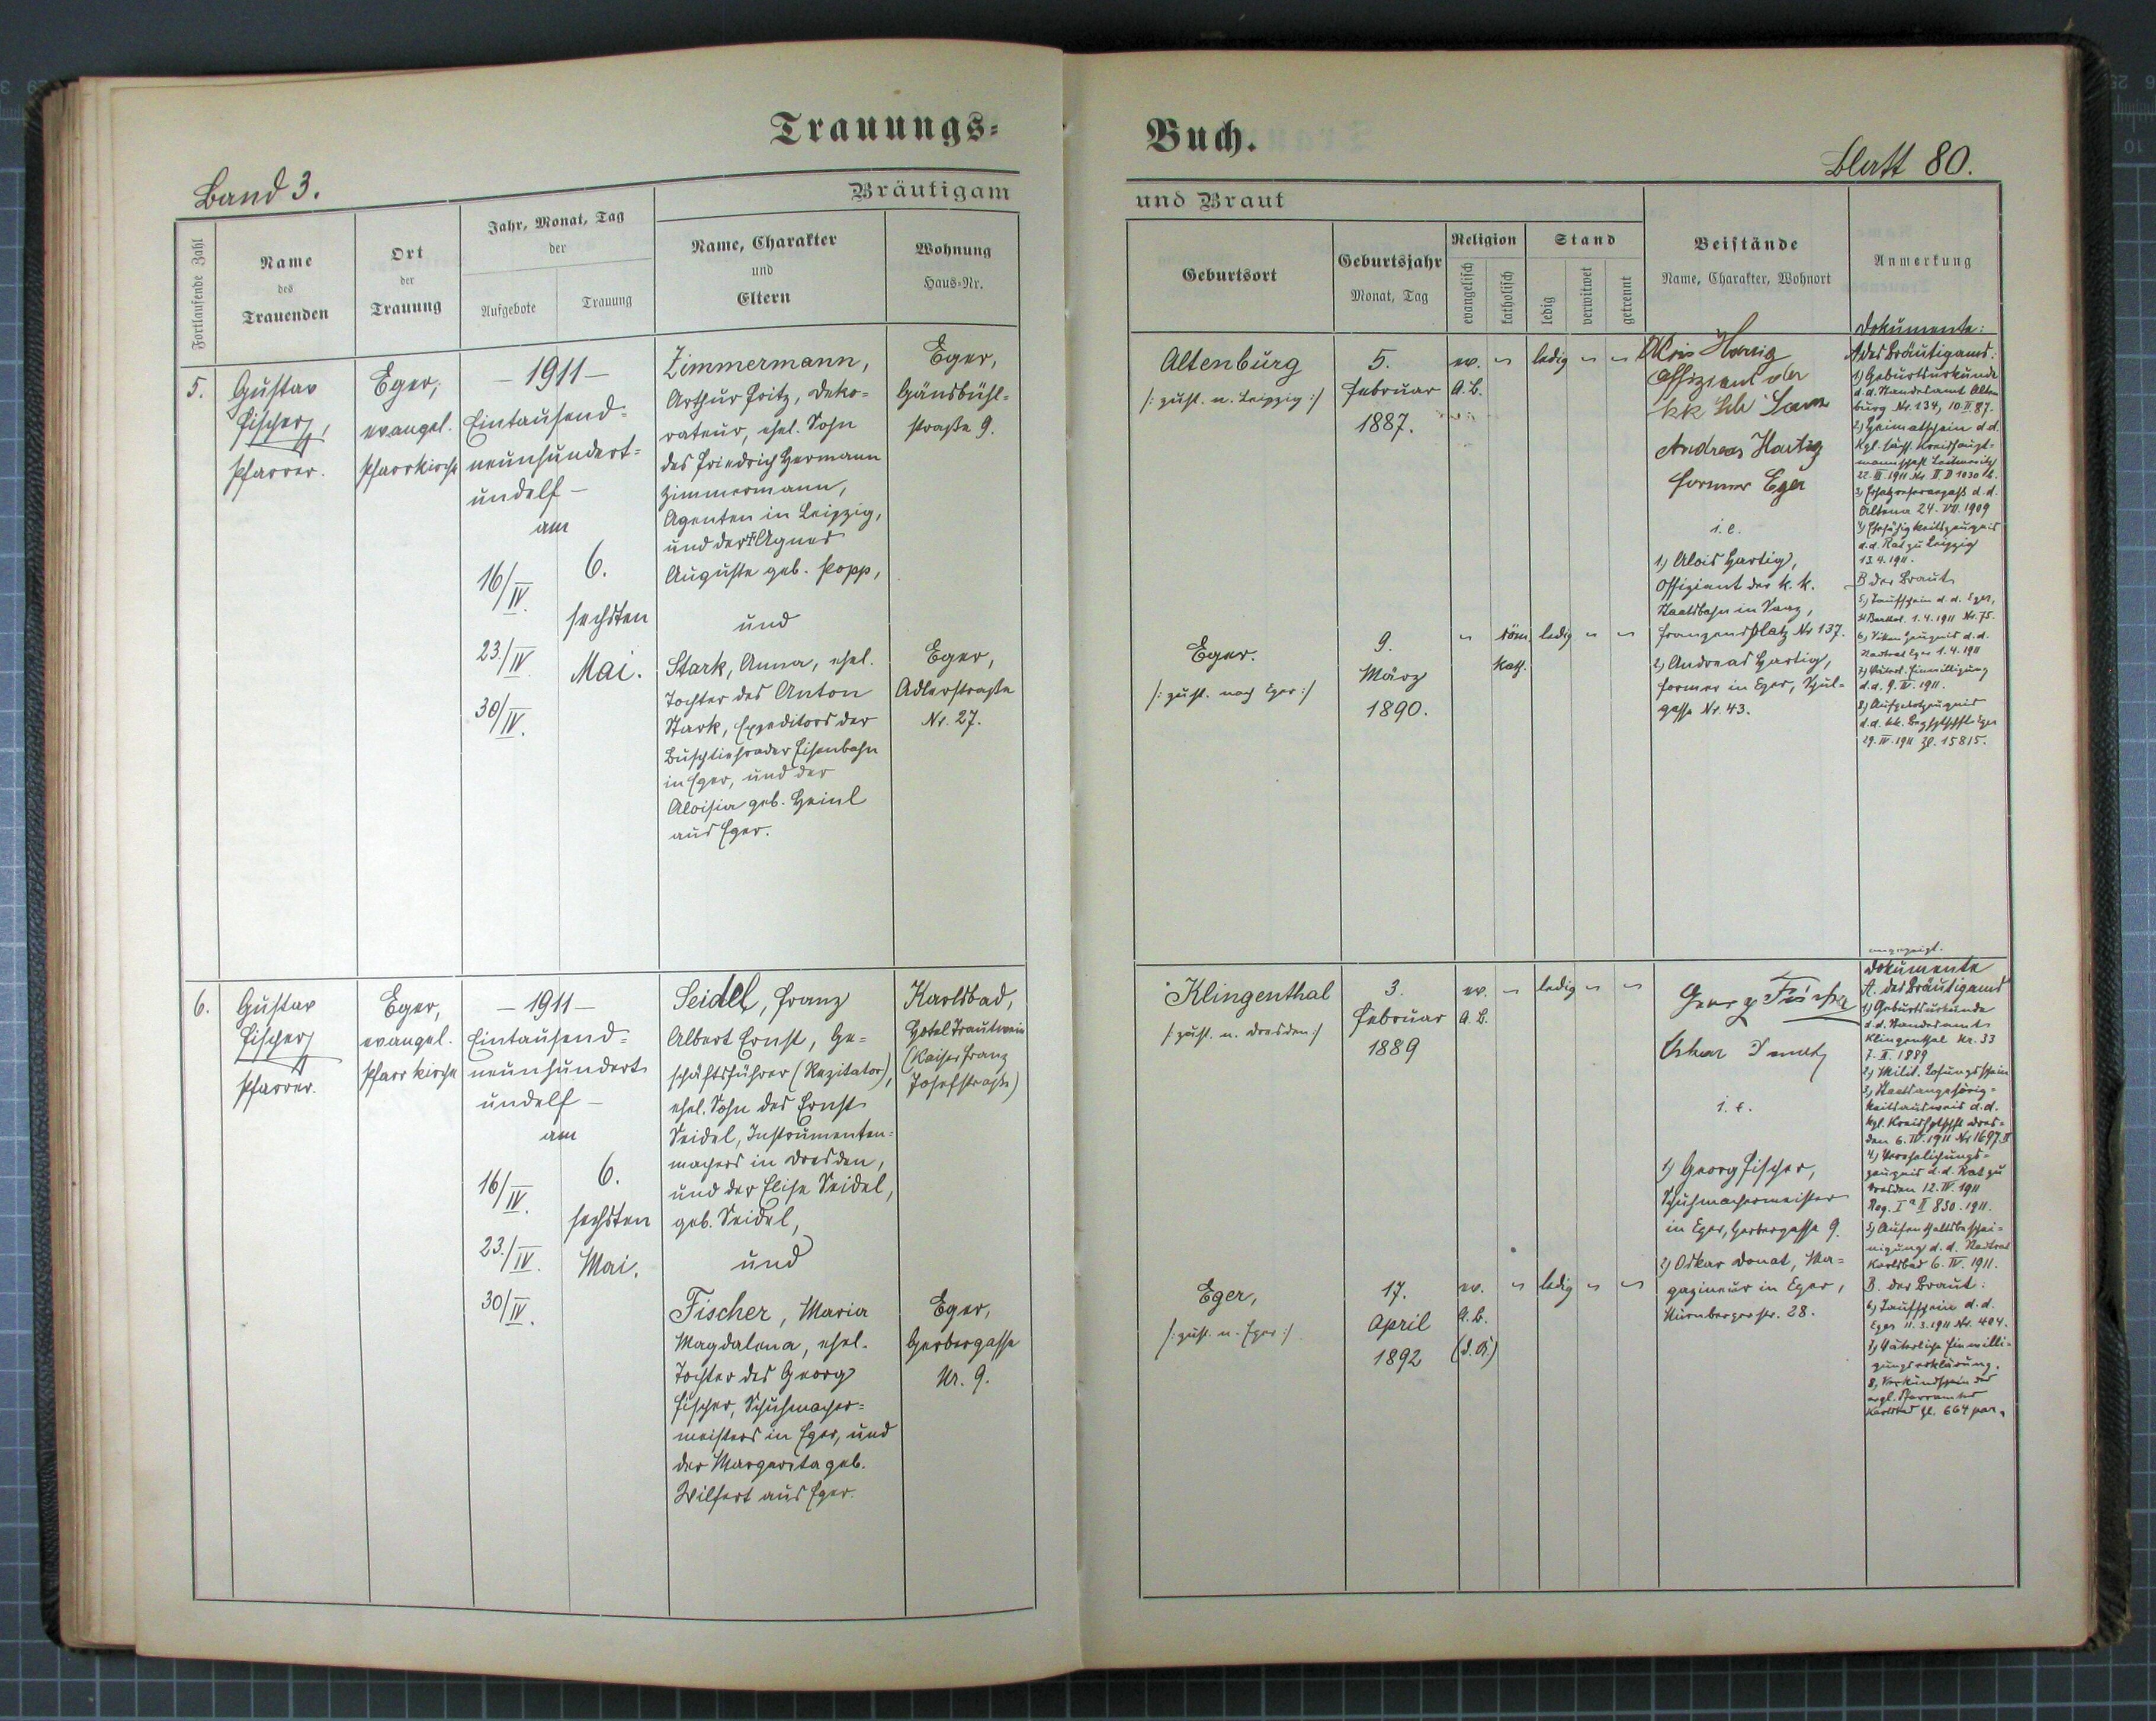 Trauungs=
Band 3.
Bräutigam
Fortlaufende Zahl
Name
des
Trauenden
Ort
der
Trauung
Jahr, Monat, Tag
der
Aufgebote
Trauung
Name, Charakter
und
Eltern
Wohnung
Haus=Nr.
5.
Gustav
Fischer,
Pfarrer.
Eger,
evangel.
Pfarrkirche
– 1911 –
Eintausend=
neunhundert=
undelf –
am
16/IV.
23./IV.
30/IV.
6.
sechsten
Mai.
Zimmermann,
Arthur Fritz, Deko=
rateur, ehel. Sohn
des Friedrich Hermann
Zimmermann,
Agenten in Leipzig,
und der Agnes
Auguste geb. Popp,
und
Stark, Anna, ehel.
Tochter des Anton
Stark, Expeditors der
Buschtiehrader Eisenbahn
in Eger, und der
Aloisia geb. Heinl
aus Eger.
Eger,
Gänsbühl=
straße 9.
Eger,
Adlerstraße
Nr. 27.
6.
Gustav
Fischer
Pfarrer.
Eger,
evangel.
Pfarrkirche
– 1911 –
Eintausend=
neunhundert
undelf –
am
16/IV.
23./IV.
30/IV.
6.
sechsten
Mai.
Seidel, Franz
Albert Ernst, Ge=
schäftsführer (Rezitator),
ehel. Sohn des Ernst
Seidel, Instrumenten=
machers in Dresden,
und der Elise Seidel,
geb. Seidel,
und
Fischer, Maria
Magdalena, ehel.
Tochter des Georg
Fischer, Schuhmacher=
meisters in Eger, und
der Margareta geb.
Wilfert aus Eger.
Karlsbad,
Hotel Trautwein
(Kaiser Franz
Josefstraße)
Eger,
Gerbergasse
Nr. 9.
Buch.
Blatt 80.
und Braut
Geburtsort
Geburtsjahr
Monat, Tag
Religion
evangelisch
katholisch
Stand
ledig
verwitwet
getrennt
Beistände
Name, Charakter, Wohnort
Anmerkung
Altenburg
/: zust. n. Leipzig :/
5.
Februar
1887.
ev. " ledig " "
A. B.
Eger.
/: zust. nach Eger :/
9.
März
1890.
" röm. ledig " "
kath.
Alois Hartig
Offiziant der
kk
Andreas Hartig
Former Eger
i. e.
1) Alois Hartig,
Offiziant der k. k.
Staatsbahn in Saaz,
Franzensplatz Nr 137.
2) Andreas Hartig,
Former in Eger, Schul=
gasse Nr. 43.
Dokumente:
A des Bräutigams:
1) Geburtsurkunde
d. d. Standesamt Alten
burg Nr. 134, 10. II. 87.
2) Heimatschein d. d.
Kgl. sächs. Kreishaupt=
mannschaft
22. III. 1911 Nr. II D 1030 b.
3)
Altona 24. VII. 1909
4) Ehefähigkeitszeugnis
d. d. Rat zu Leipzig
13. 4. 1911.
B der Braut
5) Taufschein d. d. Eger,
1. 4. 1911 Nr. 75.
6) Sittenzeugnis d. d.
Stadtrat Eger 1. 4. 1911
7) Väterl. Einwilligung
d. d. 9. IV. 1911.
8) Aufgebotzeugnis
d. d. kk. Bezhptschft Eger
29. IV. 1911 Zl. 15815.
Klingenthal
/: zust. n. Dresden :/
3.
Februar
1889
ev. " ledig " "
A. B.
Eger,
/: zust. n. Eger :/
17.
April
1892
ev. " ledig " "
A. B.
Georg Fischer
Oskar Donat
i. e.
1) Georg Fischer,
Schuhmachermeister
in Eger, Gerbergasse 9.
2) Oskar Donat, Ma=
gazineur in Eger,
Nürnbergerstr. 28.
angezeigt.
Dokumente
A. des Bräutigams
1) Geburtsurkunde
d. d. Standesamt
Klingenthal Nr. 33
7. II. 1889
2) Milit. Losungsschein
3) Staatsangehörig=
keitsausweis d. d.
kgl. Kreishptschft Dres=
den 6. IV. 1911 Nr 1697 II
4) Verehelichungs=
zeugnis d. d. Rat zu
Dresden 12. IV. 1911
Reg. Ia II 830. 1911.
5) Aufenthaltsbeschei=
nigung d. d. Stadtrat
Karlsbad 6. IV. 1911.
B. der Braut:
6) Taufschein d. d.
Eger 11. 3. 1911 Nr. 404.
7) Väterliche Einwilli=
gungserklärung.
8) Verkündschein des
evgl. Pfarramtes
Karlsbad Zl. 664 par.